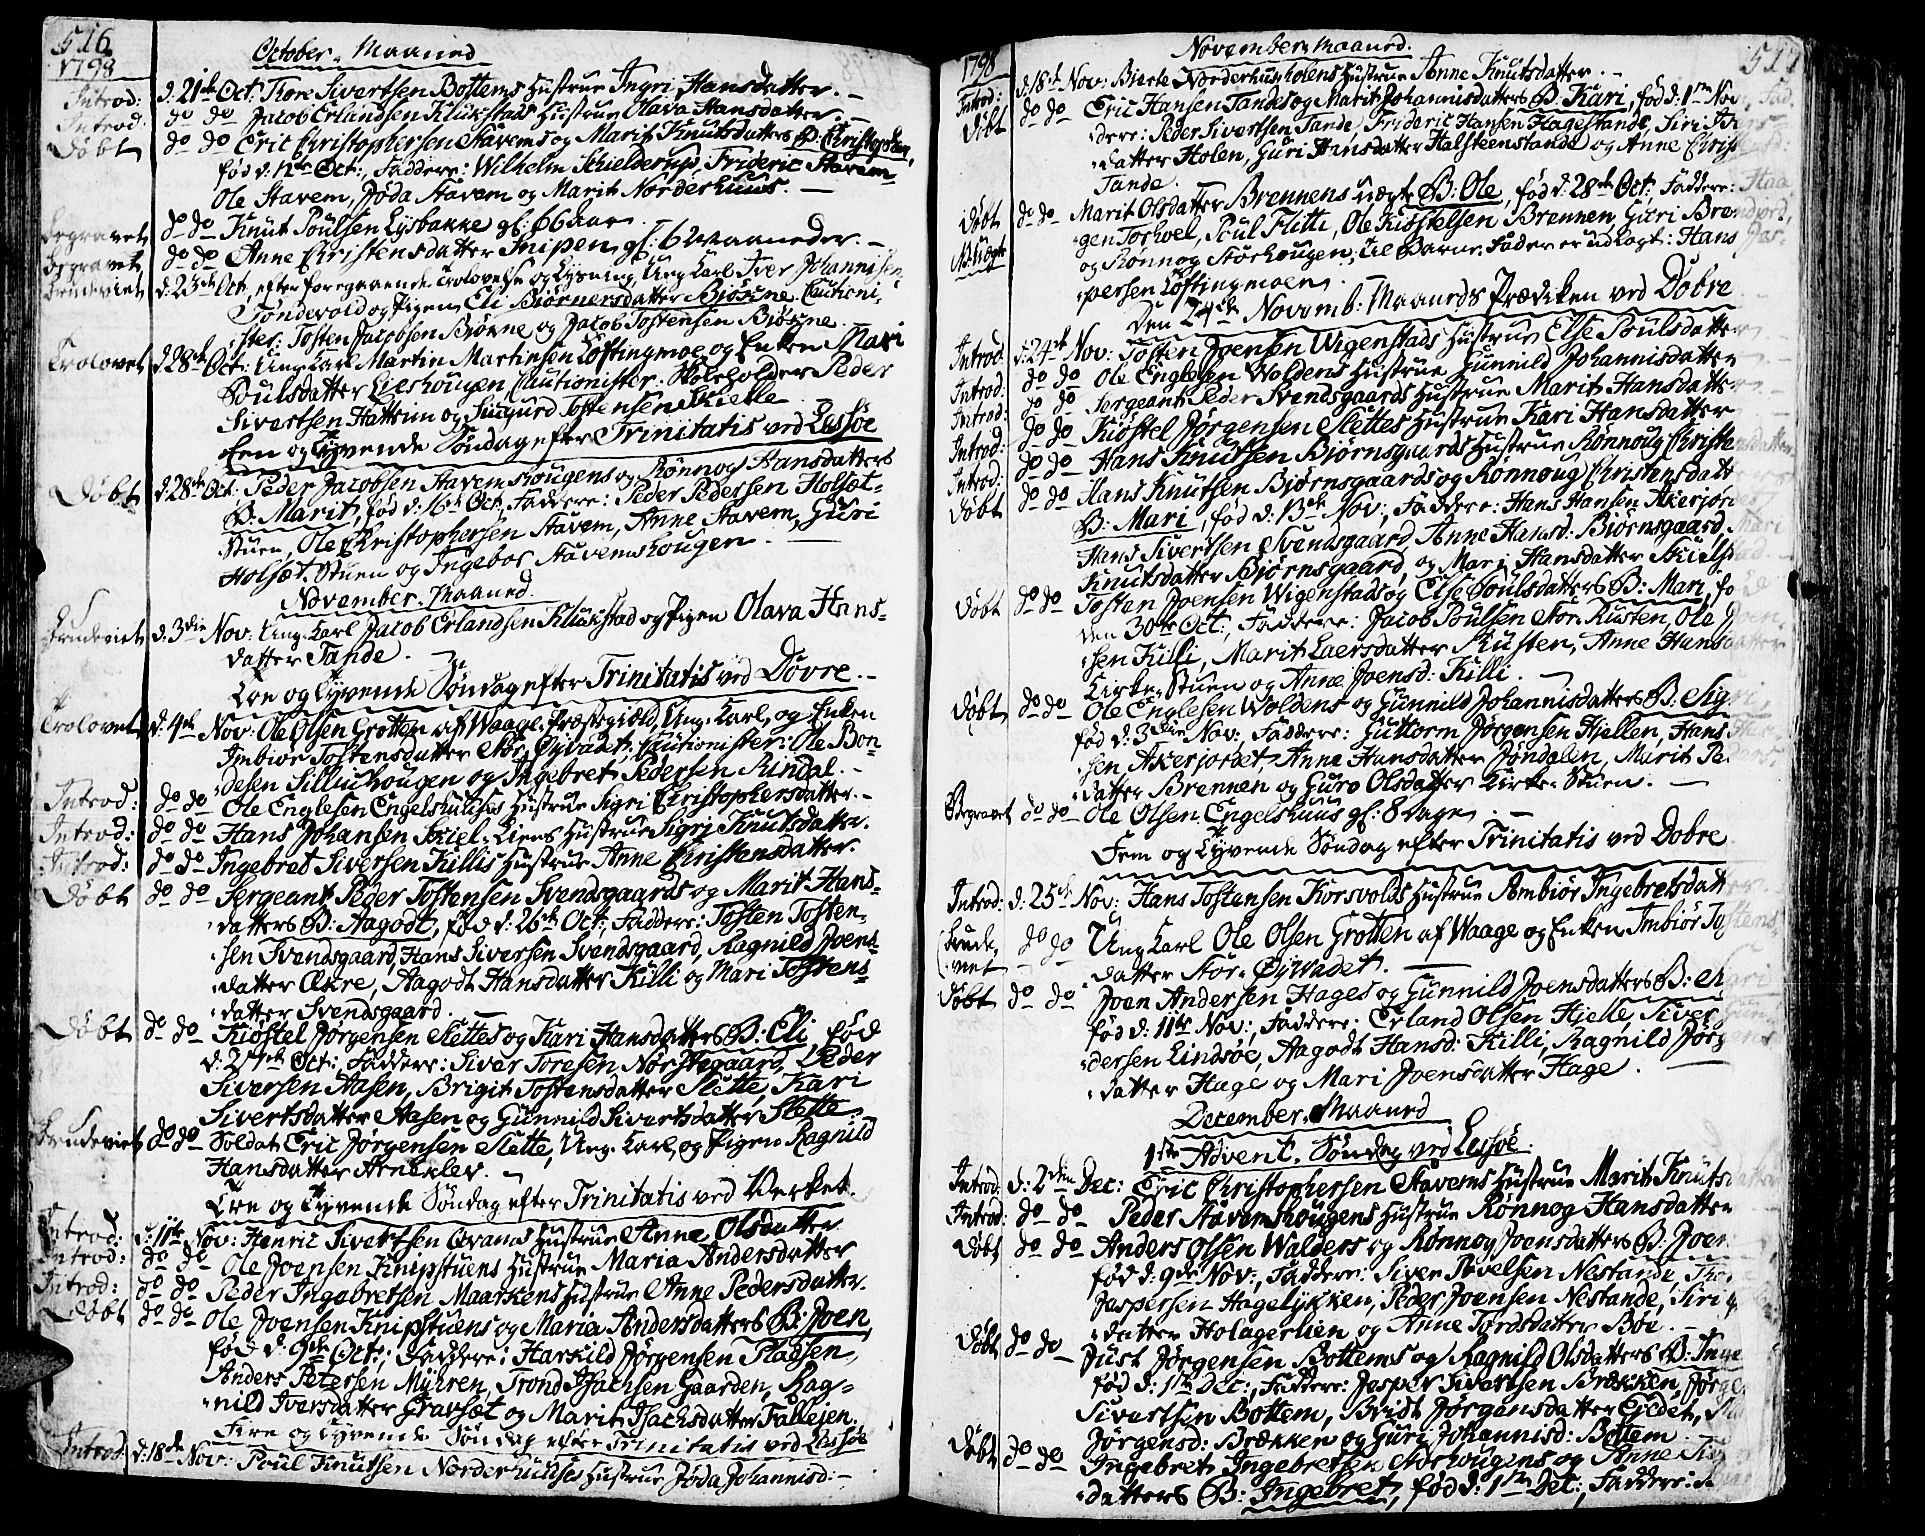 516
1798
October Maaned
Introd: d: 21de Oct: Tore Sivertsen Bottems Hustrue Ingri Hansdatter.
Introd: do do Jacob Erlandsen Klukstads Hustrue Olava Hansdatter.
Døbt do do Eric Christophersen Stavems og Marit Knutsdatters B: Christopher,
fød d: 12te Oct:, Faddere: Wilhelm Schielderup, Frideric Stavem-
Ole Stavem, Jøda Stavem og Marit Norderhuus.
Begravet do do Knut Poulsen Lysbakke gl: 66 aar
Begravet do do Anne Christensdatter Snipen gl: 6 Maaneder.
Brudeviet d: 23de Oct, efter foregaaende Trolovelse og Lysning, Ung-Karl Iver Johannisen
Tøndevold og Pigen Eli Biørnersdatter Biøkne Cautioni-
ster: Tosten Jacobsen Biøkne og Jacob Tostensen Biøkne
Trolovet d: 28de Oct: Ung-Karl Martin Martinsen Løftingmoe og Enken Mari
Poulsdatter Lieshougen Cautionister. Skoleholder Peder
Sivertsen Hattrim og Siugurd Tostensen Skielle
Een og Tyvende Søndag efter Trinitatis ved Lessøe
Døbt d: 28de Oct: Peder Jacobsen Stavemshougens og Rønnog Hansdatters
B: Marit, fød d: 16de Oct, Faddere: Peder Pedersen Holsæt-
Stuen, Ole Christophersen Stavem, Anne Stavem, Guri
Holsæt-Stuen og Ingebor Stavemshougen
November Maaned.
Brudeviet d: 3die Nov: Ung-Karl Jacob Erlandsen Klukstad og Pigen Olava Hans-
datter Tande.
Toe og Tyvende Søndag efter Trinitatis ved Dovre.
Trolovet d: 4de Nov: Ole Olsen Grotten af Waage-Præstegield, Ung-Karl, og Enken
Imbiør Tostensdatter Stor-Øyvadet, Cautionister: Ole Bon-
desen Silliuhougen og Ingebret Pedersen Rindal.
Introd: do do Ole Englesen Engelshuuses Hustrue Sigri Christophersdatter.
Introd: do do Hans Johansen Skiel-Liens Hustrue Sigri Knutsdatter.
Introd: do do Ingebret Siversen Killis Hustrue Anne Christensdatter.
Døbt do do Sergeant Peder Tostensen Svendsgaards og Marit Hans-
datters B: Aagodt, fød d: 26de Oct; Faddere: Tosten Tosten-
sen Svendsgaard, Hans Siversen Svendsgaard, Ragnild Joens-
datter Økre, Aagodt Hansdatter Killi og Mari Tostens-
datter Svendsgaard.
Døbt do do Kiøstel Jørgensen Slettes og Kari Hansdatters B: Eli, fød
d: 27de Oct: Faddere: Siver Toresen Nørstegaard, Peder
Siversen Aasen, Brigit Tostensdatter Slette, Kari
Sivertsdatter Aasen og Gunnild Sivertsdatter Slette.
Brudeviet do do Soldat Eric Jørgensen Slette, Ung-Karl, og Pigen Ragnild
Hansdatter Arneklev.
Tre og Tyvende Søndag efter Trinitatis ved Verket.
Introd: d: 11te Nov: Henric Sivertsen Tvanes Hustrue Anne Olsdatter
Introd: do do Ole Joensen Knipstuens Hustrue Maria Andersdatter
Introd: do do Peder Ingebretsen Maarkens Hustrue Anne Pedersdatter.
Døbt do do Ole Joensen Knipstuens og Maria Andersdatters B: Joen,
fød d: 9de Oct:, Faddere: Harkild Jørgensen Pladsen,
Anders Petersen Myhren, Trond Isachsen Gaarden, Rag-
nild Iversdatter Gravsæt og Marit Isachsdatter Fallejen.
Fire og Tyvende Søndag efter Trinitatis ved Lessøe
Introd: d: 18de Nov: Poul Knutsen Norderhuuses Hustrue Jøda Johannisd:
1798
November Maaned.
517
Introd: d: 18de Nov: Bierle Norderhusholens Hustrue Anne Knutsdatter.
Døbt do do Eric Hansen Tandes og Marit Johannisdatters B: Kari, fød d: 1ste Nov, Fad-
dere: Peder Sivertsen Tande, Frideric Hansen Hagestande, Siri
datter Holen, Guri Hansdatter Halsteenstande og Anne
Tande.
Døbt do do Marit Olsdatter Brennens uægte B: Ole, fød d: 28de Oct; Faddere: Haa-
Nb: Uægte gen Torvoel, Poul Flitti, Ole Kiøstelsen Brennen, Guri Brenjord,
og Rønnog Storhougen, til Barne-Fader er udlagt: Hans Jas-
persen Løftingmoen
Den 24de Novemb. Maaneds Prædiken ved Dovre
Introd: d: 24de Nov: Tosten Joensen Wigenstads Hustrue Else Poulsdatter
Introd: do do Ole Englesen Woldens Hustrue Gunnild Johannisdatter
Introd: do do Sergeant Peder Svendsgaards Hustrue Marit Hansdatter
Introd: do do Kiøstel Jørgensen Slettes Hustrue Kari Hansdatter
Introd: do do Hans Knutsen Biørnsgaards Hustrue Rønnoug Christensdatter
Døbt do do Hans Knutsen Biørnsgaards og Rønnoug Christensdatt
B: Mari, fød d: 13de Nov:, Faddere: Hans Hansen Akerjordet,
Hans Sivertsen Svendsgaard, Anne Hansd: Biørnsgaard, Mari
Knutsdatter Biørnsgaard, og Mari Hansdatter
Døbt do do Tosten Joensen Wigenstads og Else Poulsdatters B: Mari, fød
den 30te Oct:, Faddere: Jacob Poulsen Stor-Rusten, Ole Joen-
sen Killi, Marit Laersdatter Rusten, Anne Hansdatter
Kirke-Stuen og Anne Joensd: Killi.
Døbt do do Ole Englesen Woldens og Gunnild Johannisdatters B: Sigri,
fød d: 3die Nov:, Faddere: Guttorm Jørgensen Hjellen, Hans
sen Akerjordet, Anne Hansdatter Jøndalen, Marit
datter Brennen og Guro Olsdatter Kirke-Stuen.
Begravet do do Ole Olsen Engelshuus gl: 8 Dage
Fem og Tyvende Søndag efter Trinitatis ved Dovre
Introd: d: 25de Nov: Hans Tostensen Korsvolds Hustrue Ambiør Ingebretsdatter.
Brude-
viet do do Ung-Karl Ole Olsen Grotten af Waage og Enken Imbiør Tostens-
datter Stor-Øyvadet.
Døbt do do Joen Andersen Hages og Gunnild Joensdatters B: Mari
fød d: 11te Nov:, Faddere: Erland Olsen Hjelle, Siver
dersen Lindsøe, Aagodt Hansd: Killi, Ragnild Jørgens-
datter Hage og Mari Joensdatter Hage.
December Maaned
1ste Advent-Søndag ved Lessøe.
Introd: d: 2den Dec: Eric Christophersen Stavems Hustrue Marit Knutsdatter
Introd: do do Peder Stavemshougens Hustrue Rønnog Hansdatter
Døbt do do Anders Olsen Walders og Rønnog Joensdatters B: Joen
fød d: 9de Nov:, Faddere: Siver Povelsen Nestande,
Jaspersen Hagelykken, Peder Joensen Nestande, Siri
datter Holagerlien og Anne Tordsdatter Bøe.
Døbt do do Just Jørgensen Bottems og Ragnild Olsdatters B:
fød d: 1ste Dec:, Faddere: Jasper Sivertsen Brækken,
Sivertsen Bottem, Bridt Jørgensdatter Ejldet,
Jørgensd: Brækken og Guri Johannisd: Bottem
Døbt do do Ingebret Ingebretsen Nørhougens og Anne
datters B: Ingebret, fød d: 1ste Dec:, Faddere: